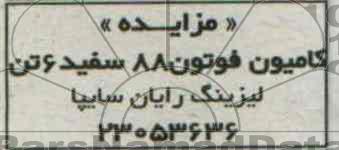 « مزایـــده »
کامیون فوتون۸۸ سفید ۶تن
لیزینگ رایان سایپا
۲۳۰۵۳۶۳۶